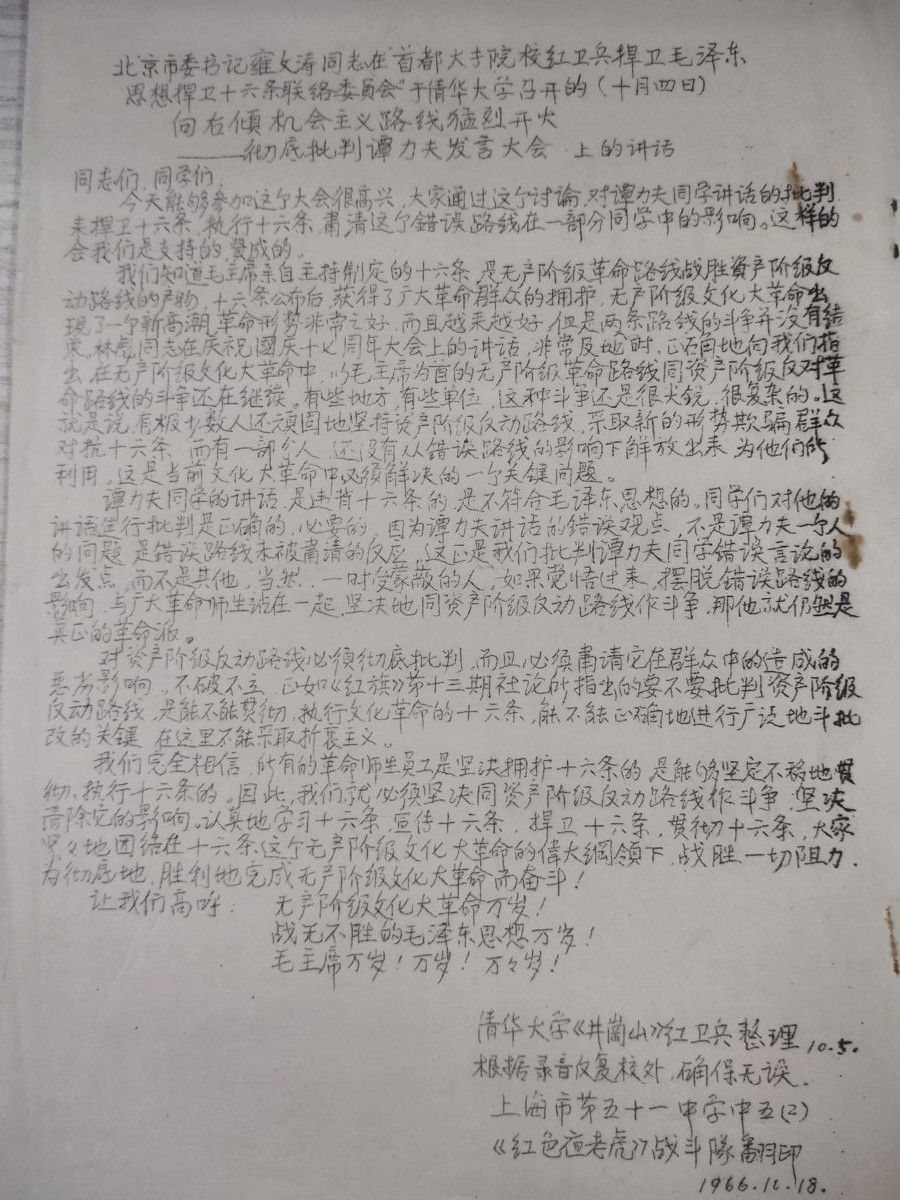 北京市委书记雍文涛同志在“首都大专院校红卫兵捍卫毛泽东
思想捍卫十六条联络委员会”于清华大学召开的(十月四日)
向右倾机会主义路线猛烈开火
——彻底批判谭力夫发言大会 上的讲话
同志们,同学们,
今天能够参加这个大会很高兴,大家通过这个讨论,对谭力夫同学讲话的批判
来捍卫十六条,执行十六条,肃清这个错误路线在一部分同学中的影响。这样的
会我们是支持的,赞成的。
我们知道毛主席亲自主持制定的十六条,是无产阶级革命路线战胜资产阶级反
动路线的产物,十六条公布后,获得了广大革命群众的拥护,无产阶级文化大革命出
现了一个新高潮,革命形势非常之好,而且越来越好,但是两条路线的斗争并没有结
束,林彪同志在庆祝國庆十七周年大会上的讲话,非常及地时,正确地向我们指
出,在无产阶级文化大革命中,以毛主席为首的无产阶级革命路线同资产阶级反对革
命路线的斗争还在继续。有些地方,有些单位,这种斗争还是很尖锐,很复杂的。这
就是说,有极少数人还顽固地坚持资产阶级反动路线,采取新的形势欺骗群众
对抗十六条,而有一部分人,还没有从错误路线的影响下解放出来,为他们所
利用。这是当前文化大革命中必须解决的一个关键问题。
谭力夫同学的讲话,是违背十六条的,是不符合毛泽东思想的。同学们对他的
讲话进行批判是正确的,必要的,因为谭力夫讲话的错误观点,不是谭力夫一个人
的问题,是错误路线未被肃清的反应,这正是我们批判谭力夫同学错误言论的
出发点,而不是其他。当然,一时受蒙蔽的人,如果觉悟过来,摆脱错误路线的
影响,与广大革命师生站在一起,坚决地同资产阶级反动路线作斗争,那他就仍然是
真正的革命派。
对资产阶级反动路线必须彻底批判,而且必须肃清它在群众中的造成的
恶劣影响。不破不立,正如《红旗》第十三期社论所指出的要不要批判资产阶级
反动路线,是能不能贯彻,执行文化革命的十六条,能不能正确地进行广泛地斗批
改的关键,在这里不能采取折衷主义。
我们完全相信,所有的革命师生员工是坚决拥护十六条的,是能够坚定不移地贯
彻、执行十六条的。因此,我们就必须坚决同资产阶级反动路线作斗争,坚决
清除它的影响。认真地学习十六条,宣传十六条,捍卫十六条,贯彻十六条,大家
紧々地团结在十六条这个无产阶级文化大革命的偉大綱領下,战胜一切阻力,
为彻底地,胜利地完成无产阶级文化大革命而奋斗!
让我们高呼: 无产阶级文化大革命万岁!
战无不胜的毛泽东思想万岁!
毛主席万岁!万岁!万々岁!
清华大学《井崗山》红卫兵整理 10.5.
根据录音反复校处,确保无误。
上海市第五十一中学中五(2)
《红色夜老虎》战斗隊翻印
1966.10.18.